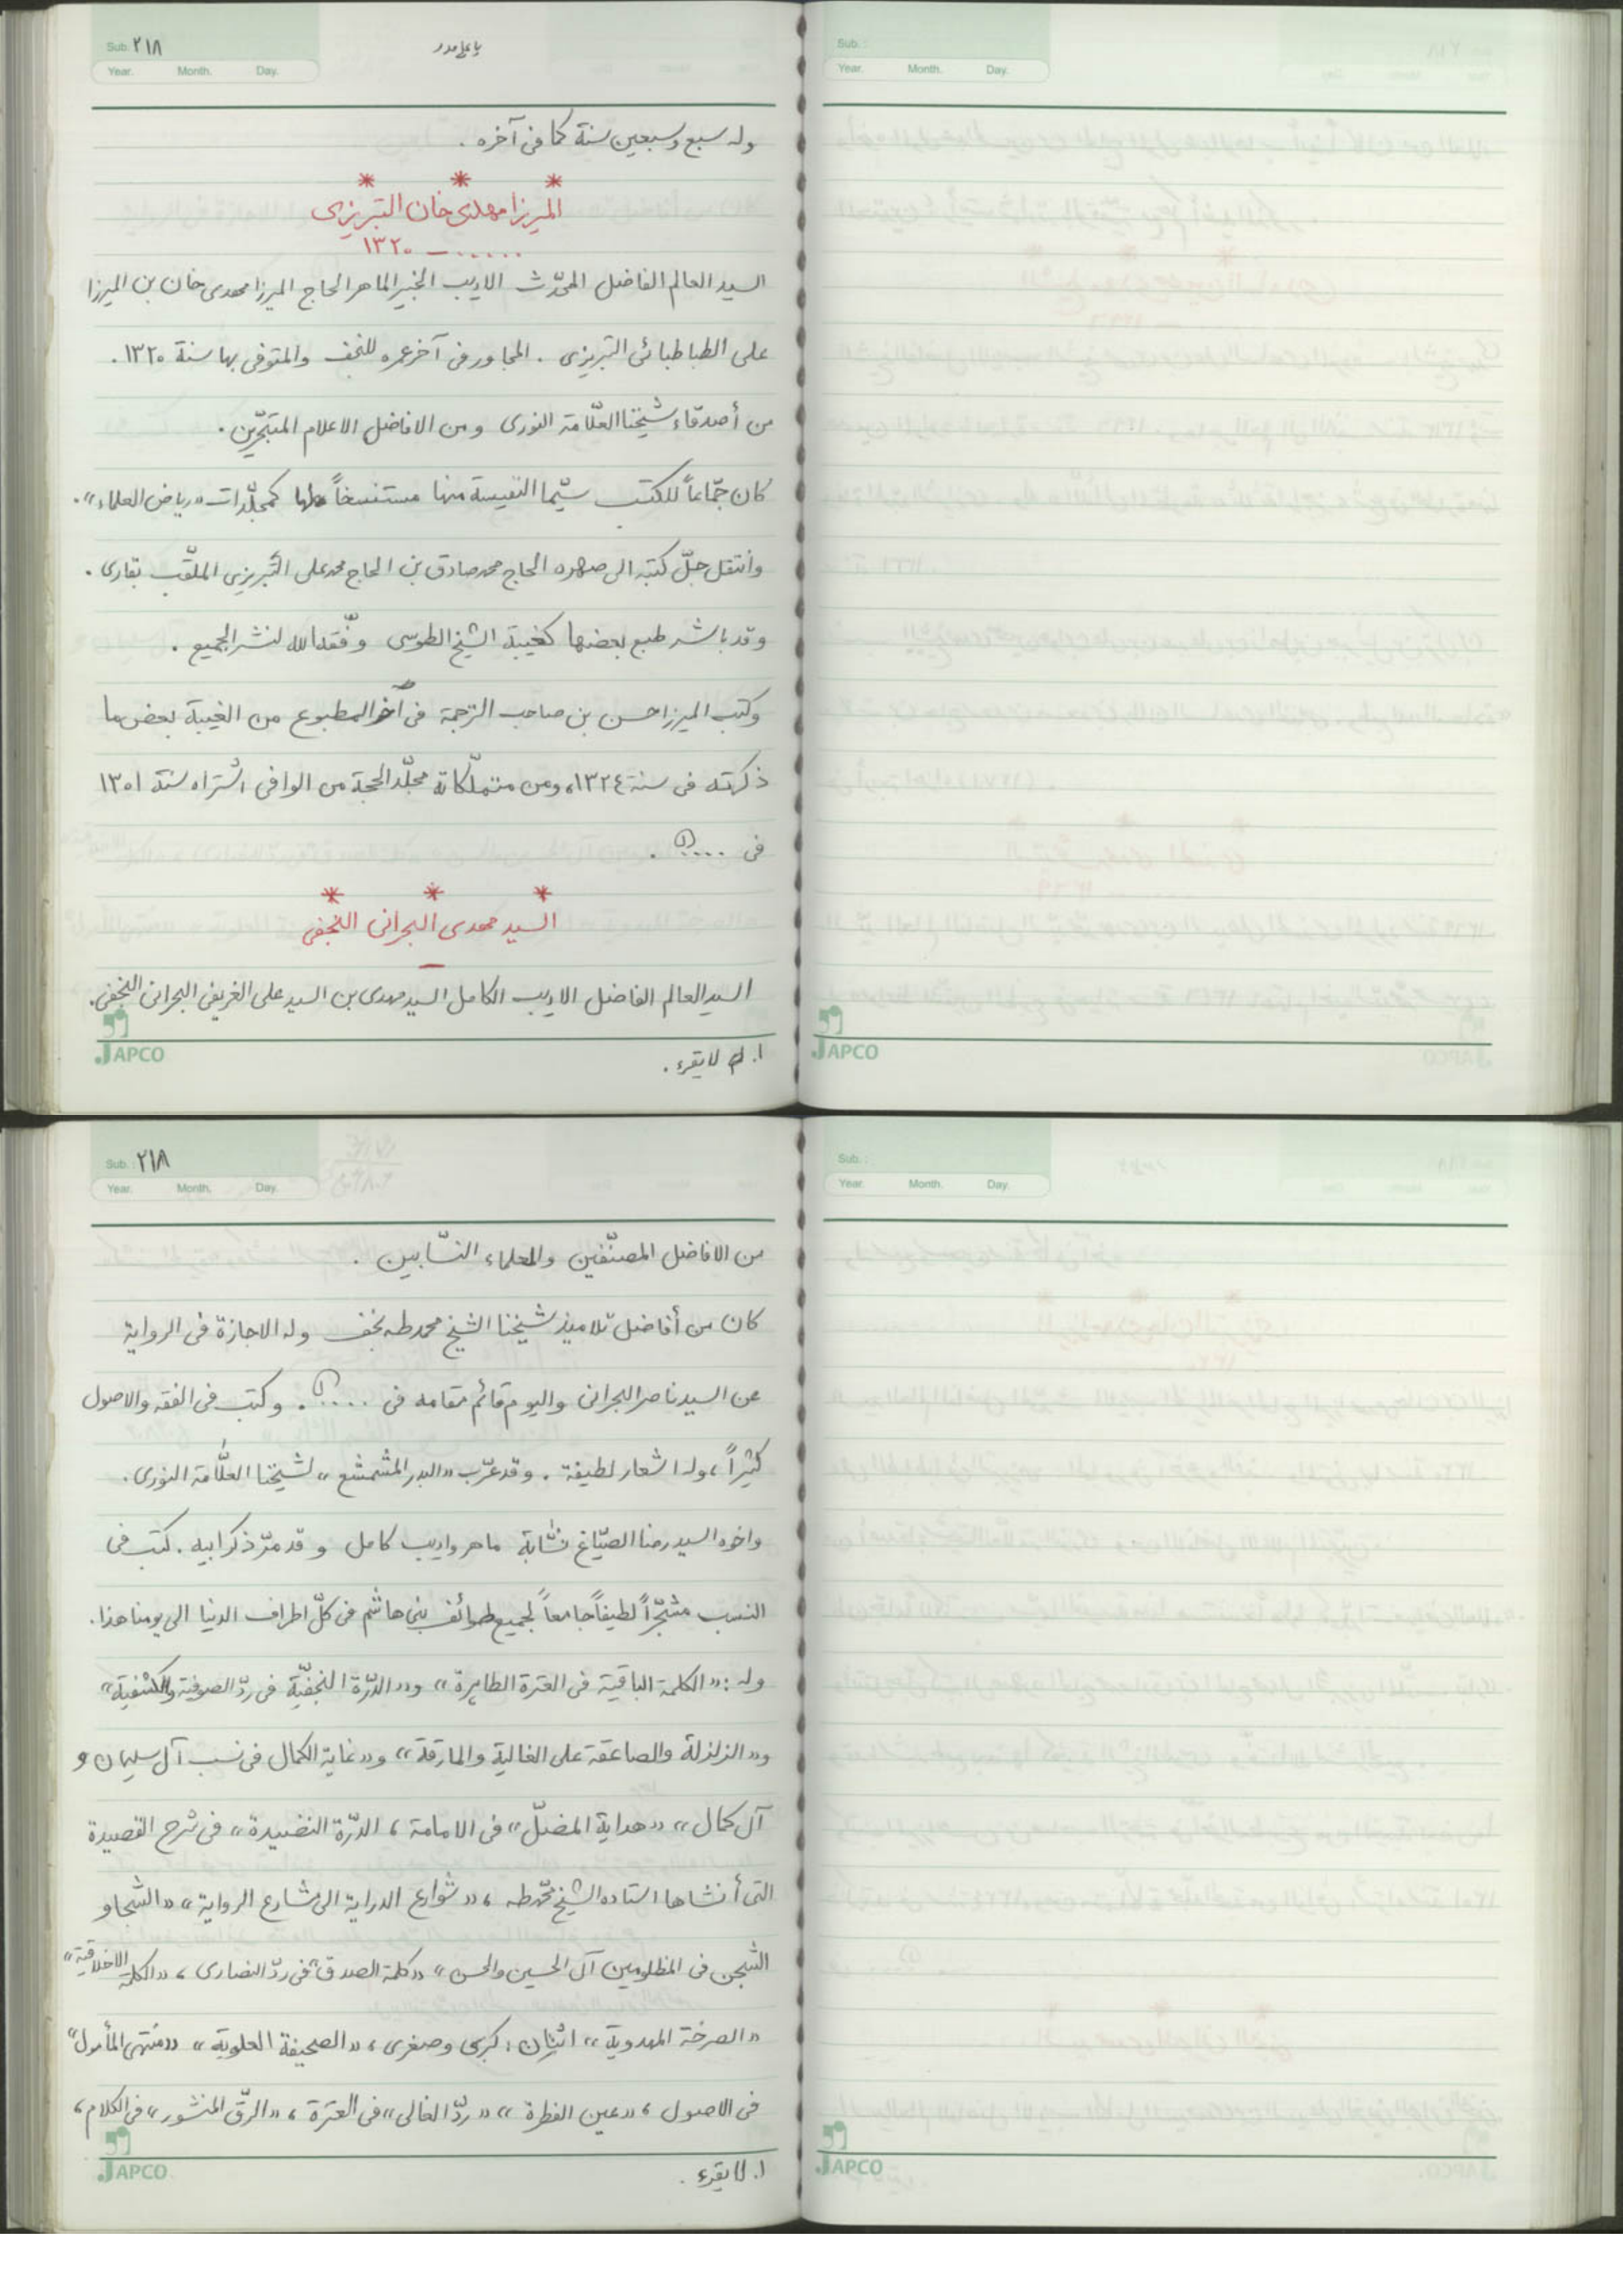 Sub. ٢١٨
يا علي مدد
Year. Month. Day.
وله سبع وسبعين سنة كما في آخره .
* * *
الميرزا مهدي خان التبريزي
...... ــ ١٣٢٠
السيد العالم الفاضل المحدّث الاديب الخبير الماهر الحاج الميرزا مهدي خان بن الميرزا
علي الطباطبائي التبريزي . المجاور في آخر عمره للنجف والمتوفى بها سنة ١٣٢٠ .
من أصدقاء شيخنا العلّامة النوري ومن الافاضل الاعلام المتبحّرين .
كان جمّاعاً للكتب سيّما النفيسة منها مستنسخاً لها كمجلّدات «رياض العلماء» .
وانتقل جلّ كتبه الى صهره الحاج محمد صادق بن الحاج محمد علي التبريزي الملقّب بقاري .
وقد باشر طبع بعضها كغيبة الشيخ الطوسي وفّقه الله لنشر الجميع .
وكتب الميرزا حسن بن صاحب الترجمة في آخر المطبوع من الغيبة بعض ما
ذكرته في سنة ١٣٢٤، ومن متملّكاته مجلّد الحجة من الوافي اشتراه سنة ١٣٠١
في .....(١) .
* * *
السيد مهدي البحراني النجفي
ــ
السيد العالم الفاضل الاديب الكامل السيد مهدي بن السيد علي الغريفي البحراني النجفي .
JAPCO
١. لا يقرء .
Sub. :
Year. Month. Day.
JAPCO
Sub. : ٢١٨
Year. Month. Day.
من الافاضل المصنّفين والعلماء النسّابين .
كان من أفاضل تلاميذ شيخنا الشيخ محمد طه نجف وله الاجازة في الرواية
عن السيد ناصر البحراني واليوم قائم مقامه في .....(١) . وكتب في الفقه والاصول
كثيراً، وله اشعار لطيفة . وقد عرّب «البدر المشعشع» لشيخنا العلّامة النوري .
واخوه السيد رضا الصيّاغ نسّابة ماهر واديب كامل وقد مرّ ذكر ابيه . كتب في
النسب مشجّراً لطيفاً جامعاً لجميع طوائف بني هاشم في كلّ اطراف الدنيا الى يومنا هذا .
وله : «الكلمة الباقية في العترة الطاهرة» و«الدرّة النجفيّة في ردّ الصوفية والكشفية»
و«الزلزلة والصاعقة على الغالية والمارقة» و«غاية الكمال في نسب آل سليمان و
آل كمال» «هداية المضلّ» في الامامة، الدرّة النضيدة» في شرح القصيدة
التي أنشاها استاده الشيخ محمّد طه ، «شوارع الدراية الى مشارع الرواية» «الشجا و
الشجن في المظلومين آل الحسين والحسن» «كلمة الصدق» في ردّ النصارى ، «الكلم الاخلاقية»
«الصرخة المهدوية» اثنان : كبرى وصغرى ، «الصحيفة العلوية» «منتهى المأمول»
في الاصول ، «عين الفطرة» «ردّ الغالي» في العترة ، «الرقّ المنشور» في الكلام ،
JAPCO
١. لا يقرء .
Sub. :
Year. Month. Day.
JAPCO